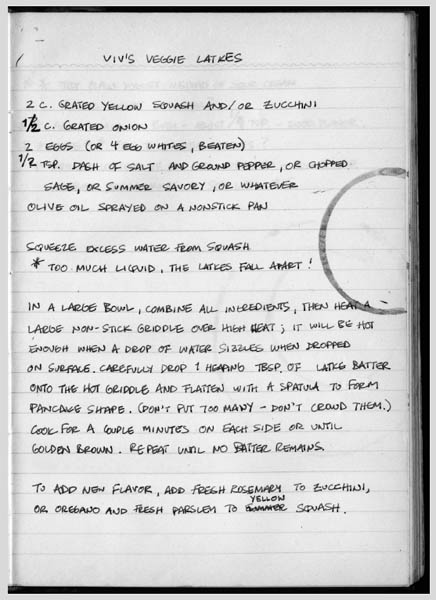 VIV'S VEGGIE LATKES
2 C. GRATED YELLOW SQUASH AND/OR ZUCCHINI
1/2 C. GRATED ONION
2 EGGS (OR 4 EGG WHITES, BEATEN)
1/2 TSP. DASH OF SALT AND GROUND PEPPER, OR CHOPPED
SAGE, OR SUMMER SAVORY, OR WHATEVER
OLIVE OIL SPRAYED ON A NONSTICK PAN
SQUEEZE EXCESS WATER FROM SQUASH
* TOO MUCH LIQUID, THE LATKES FALL APART!
IN A LARGE BOWL, COMBINE ALL INGREDIENTS, THEN HEAT A
LARGE NON-STICK GRIDDLE OVER HIGH HEAT; IT WILL BE HOT
ENOUGH WHEN A DROP OF WATER SIZZLES WHEN DROPPED
ON SURFACE. CAREFULLY DROP 1 HEAPING TBSP. OF LATKE BATTER
ONTO THE HOT GRIDDLE AND FLATTEN WITH A SPATULA TO FORM
PANCAKE SHAPE. (DON'T PUT TOO MANY - DON'T CROWD THEM.)
COOK FOR A COUPLE MINUTES ON EACH SIDE OR UNTIL
GOLDEN BROWN. REPEAT UNTIL NO BATTER REMAINS.
TO ADD NEW FLAVOR, ADD FRESH ROSEMARY TO ZUCCHINI,
OR OREGANO AND FRESH PARSLEY TO YELLOW SQUASH.